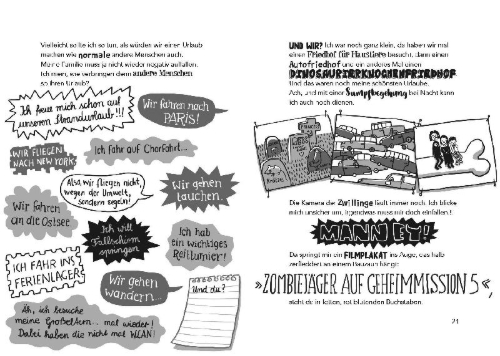 Vielleicht sollte ich so tun, als würden wir einen Urlaub
machen wie normale andere Menschen auch.
Meine Familie muss ja nicht wieder negativ auffallen.
Ich mein, wie verbringen denn andere Menschen
so ihren Urlaub?
Ich freue mich schon auf
unseren Strandurlaub!!!
Wir fahren nach
PARIS!
WIR FLIEGEN
NACH NEW YORK.
Ich fahr auf Chorfahrt...
Also wir fliegen nicht,
wegen der Umwelt,
sondern segeln!
Wir gehen
tauchen.
Wir fahren
an die Ostsee.
Ich will
Fallschirm
springen
Ich hab
ein wichtiges
Reitturnier!
ICH FAHR INS
FERIENLAGER
Wir gehen
wandern...
Und du?
Äh, ich besuche
meine Großeltern... mal wieder!
Dabei haben die nicht mal WLAN!
UND WIR? Ich war noch ganz klein, da haben wir mal
einen Friedhof für Haustiere besucht, dann einen
Autofriedhof und ein anderes Mal einen
DINOSAURIERKNOCHENFRIEDHOF.
Und das waren noch meine schönsten Urlaube.
Ach, und mit einer Sumpfbegehung bei Nacht kann
ich auch noch dienen.
Die Kamera der Zwillinge läuft immer noch. Ich blicke
mich unsicher um. Irgendwas muss mir doch einfallen!
MANNEY!
Da springt mir ein FILMPLAKAT ins Auge, das halb
zerfleddert an einem Bauzaun hängt:
»ZOMBIEJÄGER AUF GEHEIMMISSION 5«,
steht da in fetten, rot blutenden Buchstaben.
21